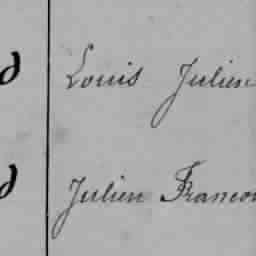 d Louis Julien
d Julien Francon